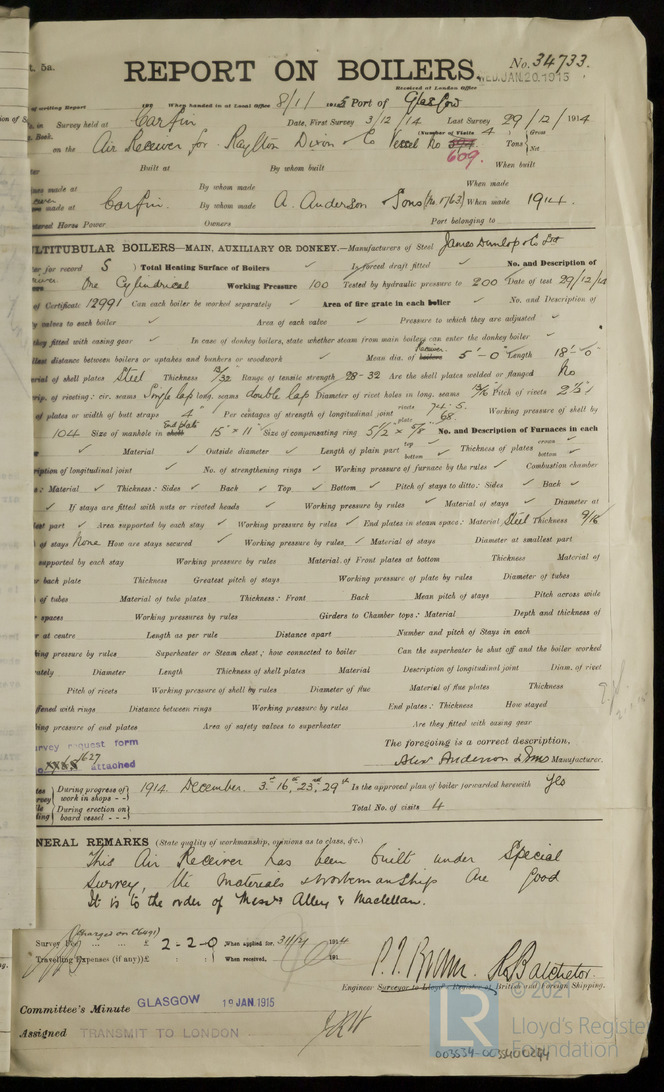 t. 5a.
REPORT ON BOILERS.
No. 34733.
Received at London Office
WED. JAN. 20. 1915
of writing Report 191 When handed in at Local Office 8/1/ 1915 Port of Glasgow
No. in Survey held at Carfin Date, First Survey 3/12/14 Last Survey 29/12/1914
Book. (Number of Visits 4)
on the Air Receiver for Raylton Dixon & Co Vessel No 609. Tons Gross Net
Built at By whom built When built
made at By whom made When made
made at Carfin. By whom made A. Anderson & Sons (No. 1763) When made 1914.
Horse Power Owners Port belonging to
MULTITUBULAR BOILERS—MAIN, AUXILIARY OR DONKEY.—Manufacturers of Steel James Dunlop & Co Ltd
for record S ) Total Heating Surface of Boilers ✓ Is forced draft fitted ✓ No. and Description of
One Cylindrical Working Pressure 100 Tested by hydraulic pressure to 200 Date of test 29/12/14
of Certificate 12991 Can each boiler be worked separately ✓ Area of fire grate in each boiler ✓ No. and Description of
valves to each boiler ✓ Area of each valve ✓ Pressure to which they are adjusted ✓
they fitted with easing gear ✓ In case of donkey boilers, state whether steam from main boilers can enter the donkey boiler ✓
distance between boilers or uptakes and bunkers or woodwork Mean dia. of boilers Receiver 5'-0" Length 18'-0"
of shell plates Steel Thickness 13/32 Range of tensile strength 28-32 Are the shell plates welded or flanged No
of riveting: cir. seams Single lap long. seams double lap Diameter of rivet holes in long. seams 13/16 Pitch of rivets 2 7/8"
of plates or width of butt straps 4" Per centages of strength of longitudinal joint rivets 74.5. plate 68. Working pressure of shell by
104 Size of manhole in shell End plate 15" × 11" Size of compensating ring No. and Description of Furnaces in each
✓ Material ✓ Outside diameter ✓ Length of plain part top bottom ✓ Thickness of plates crown bottom ✓
description of longitudinal joint ✓ No. of strengthening rings ✓ Working pressure of furnace by the rules ✓ Combustion chamber
: Material ✓ Thickness: Sides ✓ Back ✓ Top ✓ Bottom ✓ Pitch of stays to ditto: Sides ✓ Back ✓
✓ If stays are fitted with nuts or riveted heads ✓ Working pressure by rules ✓ Material of stays ✓ Diameter at
part ✓ Area supported by each stay ✓ Working pressure by rules ✓ End plates in steam space: Material Steel Thickness 9/16
of stays None How are stays secured ✓ Working pressure by rules ✓ Material of stays Diameter at smallest part
supported by each stay Working pressure by rules Material of Front plates at bottom Thickness Material of
back plate Thickness Greatest pitch of stays Working pressure of plate by rules Diameter of tubes
of tubes Material of tube plates Thickness: Front Back Mean pitch of stays Pitch across wide
spaces Working pressures by rules Girders to Chamber tops: Material Depth and thickness of
at centre Length as per rule Distance apart Number and pitch of Stays in each
pressure by rules Superheater or Steam chest; how connected to boiler Can the superheater be shut off and the boiler worked
Diameter Length Thickness of shell plates Material Description of longitudinal joint Diam. of rivet
Pitch of rivets Working pressure of shell by rules Diameter of flue Material of flue plates Thickness
with rings Distance between rings Working pressure by rules End plates: Thickness How stayed
pressure of end plates Area of safety valves to superheater Are they fitted with easing gear
Survey request form
1627
attached
The foregoing is a correct description,
Alex Anderson & Sons Manufacturer.
During progress of work in shops 1914. December. 3rd 16th 23rd 29th Is the approved plan of boiler forwarded herewith Yes
During erection on board vessel Total No. of visits 4
GENERAL REMARKS (State quality of workmanship, opinions as to class, &c.)
This Air Receiver has been built under Special
Survey, the materials & workmanship are good
It is to the order of Messrs Alley & Maclellan.
(Charged on
Survey Fee £ 2-2-0 When applied for, 31/12/ 1914
Travelling Expenses (if any) £ : : When received, 191
R. Balchetor.
Engineer Surveyor to Lloyd's Register of British and Foreign Shipping.
Committee's Minute GLASGOW 19 JAN 1915
Assigned TRANSMIT TO LONDON
LR
© 2021
Lloyd's Register
Foundation
003534-003540-0244